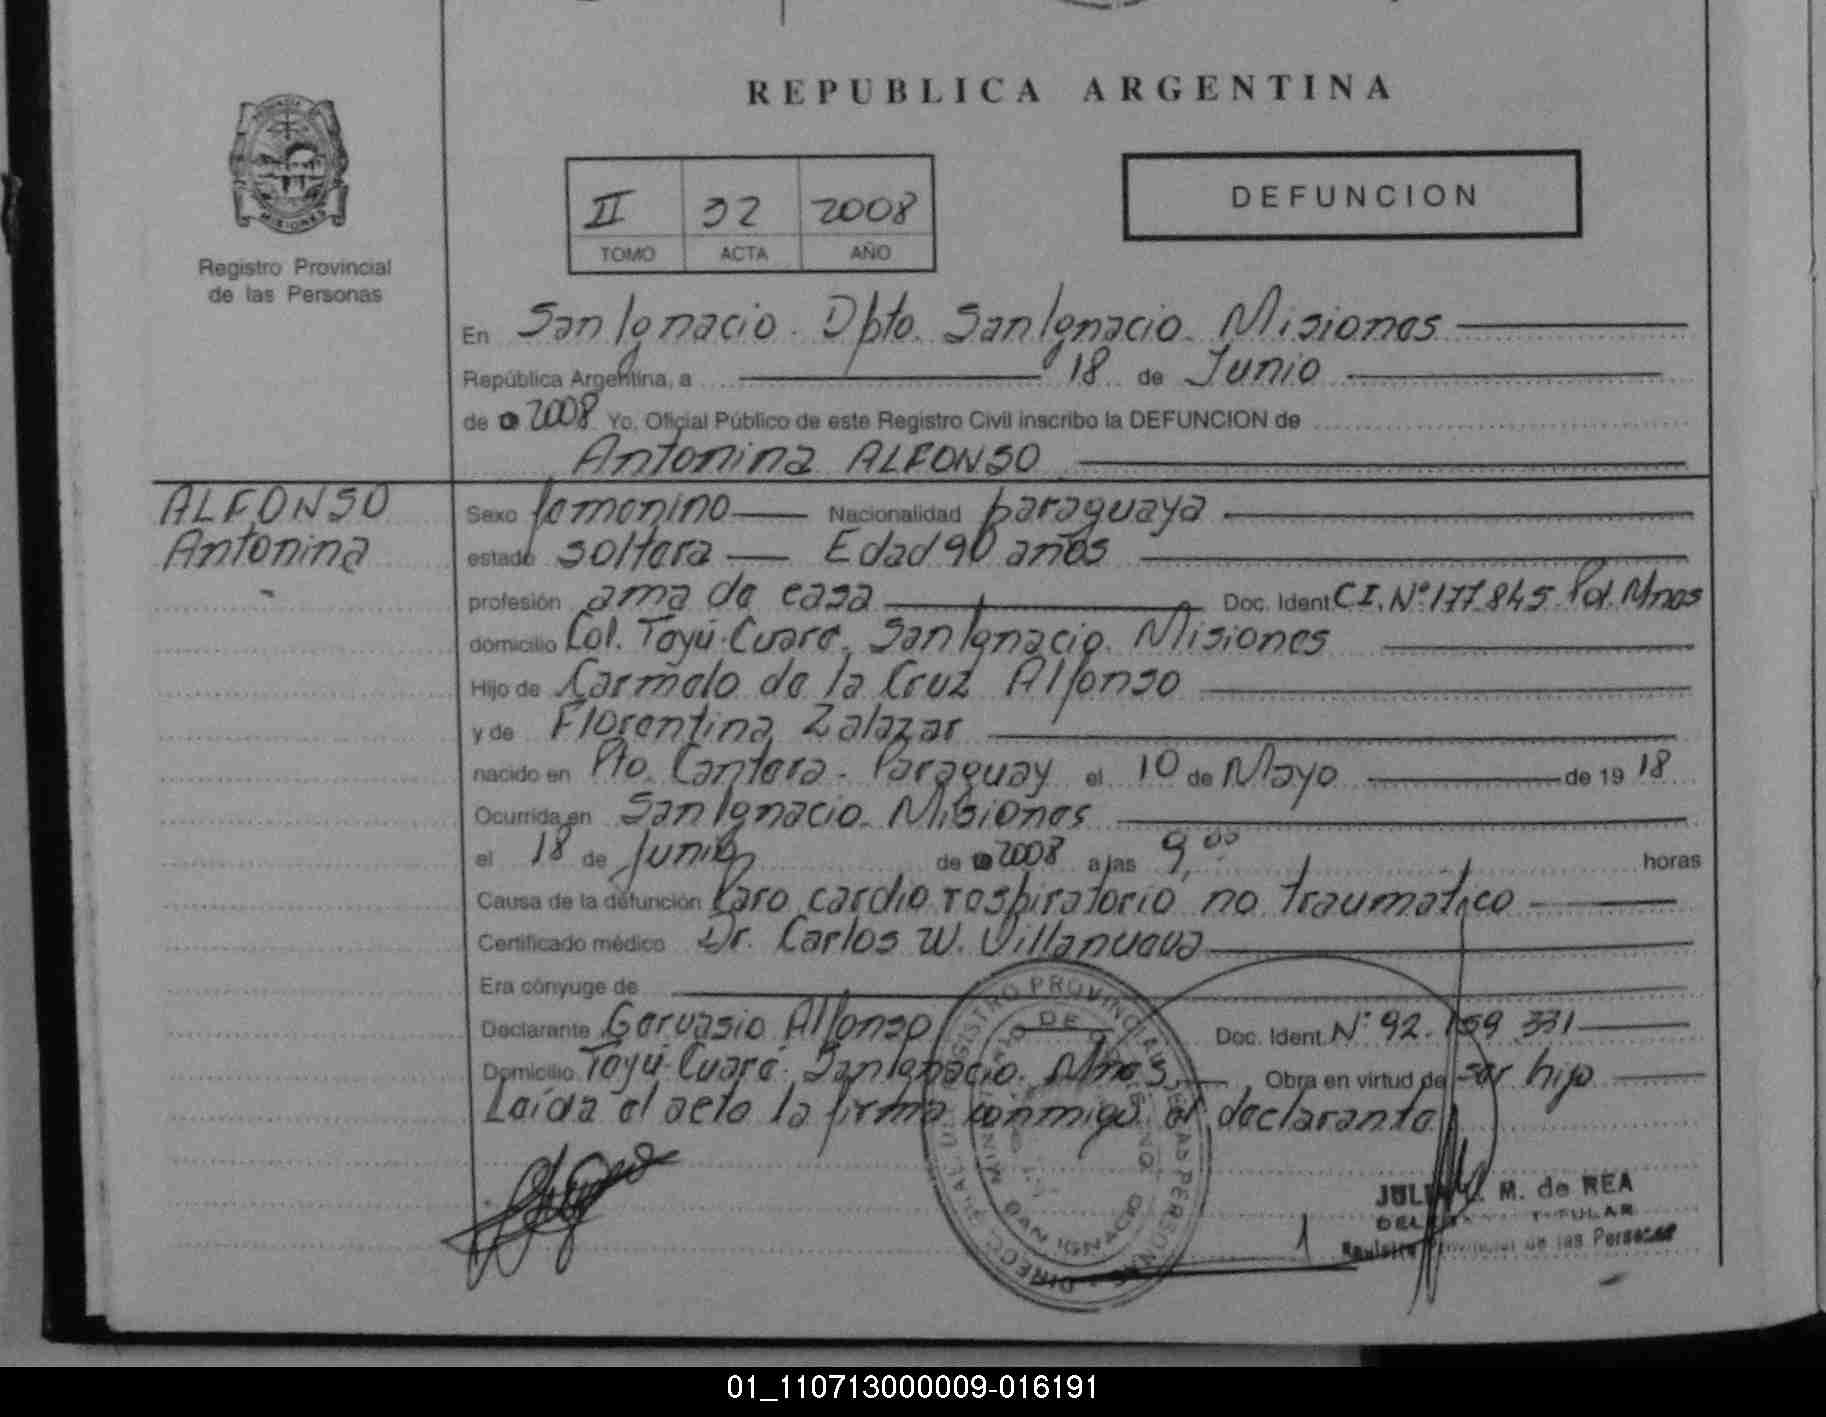 REPUBLICA ARGENTINA
II 32 2008
TOMO ACTA AÑO
DEFUNCION
MISIONES
Registro Provincial
de las Personas
En San Ignacio. Dpto. San Ignacio. Misiones
República Argentina, a 18 de Junio
de 2008 Yo, Oficial Público de este Registro Civil inscribo la DEFUNCION de
Antonina ALFONSO
ALFONSO
Antonina
Sexo femenino Nacionalidad paraguaya
estado soltera Edad 90 años
profesión ama de casa Doc. Ident. C.I. Nº 177.845 Pol. Mnes
domicilio Col. Teyú Cuaré. San Ignacio. Misiones
Hijo de Carmelo de la Cruz Alfonso
y de Florentina Zalazar
nacido en Pto. Cantera. Paraguay el 10 de Mayo de 19 18
Ocurrida en San Ignacio. Misiones
el 18 de Junio de 2008 a las 9,00 horas
Causa de la defunción Paro cardio respiratorio no traumatico
Certificado médico Dr. Carlos W. Villanueva
Era cónyuge de
Declarante Gervasio Alfonso Doc. Ident. Nº 92.159.331
Domicilio Teyú Cuaré. San Ignacio. Mnes. Obra en virtud de ser hijo
Leída el acta la firma conmigo el declarante
SAN IGNACIO
M. de REA
TITULAR
Provincial de las Personas
01_110713000009-016191